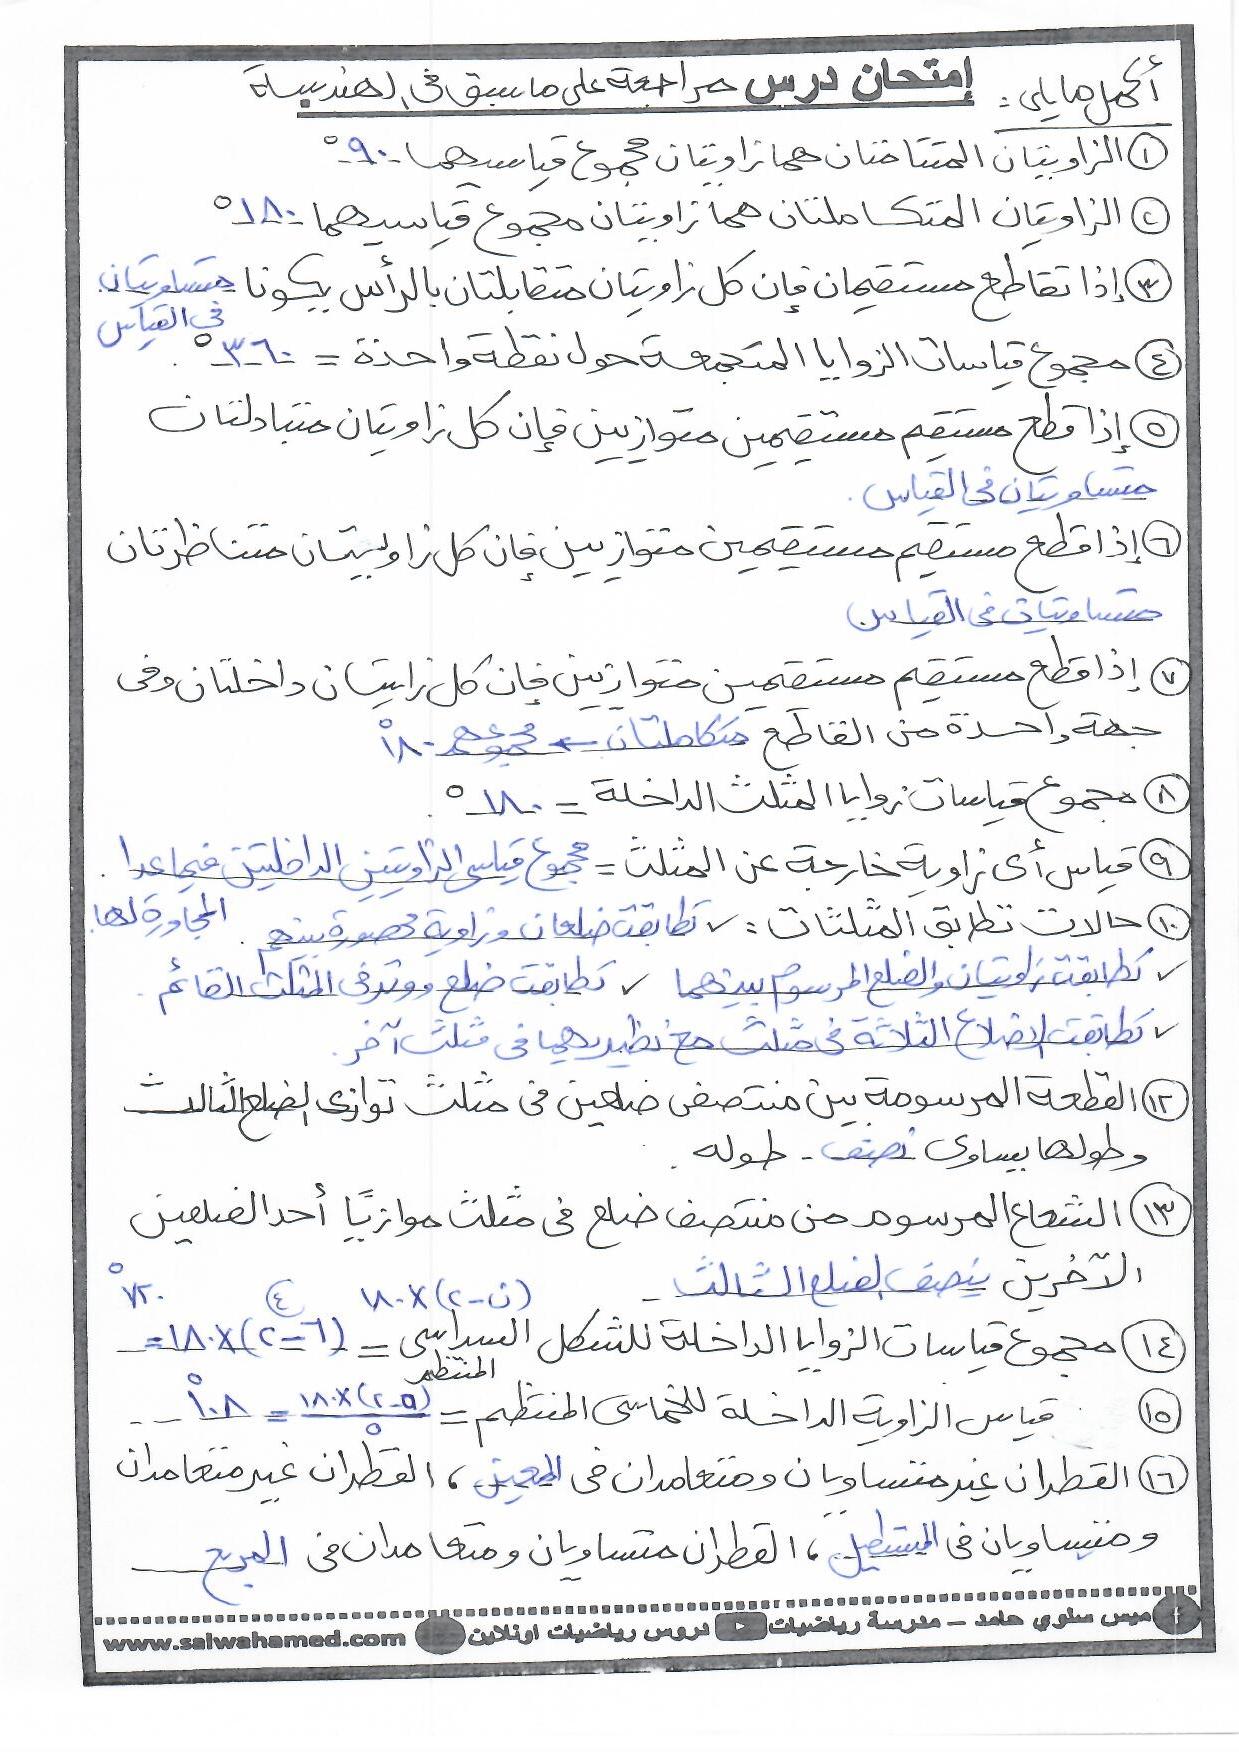 أكمل ما يلى :
إمتحان درس مراجعة على ما سبق فى الهندسة
١ الزاويتان المتتامتان هما زاويتان مجموع قياسيهما ٩٠°
٢ الزاويتان المتكاملتان هما زاويتان مجموع قياسيهما ١٨٠°
٣ إذا تقاطع مستقيمان فإن كل زاويتان متقابلتان بالرأس يكونا متساويتان
فى القياس
٤ مجموع قياسات الزوايا المتجمعة حول نقطة واحدة = ٣٦٠° .
٥ إذا قطع مستقيم مستقيمين متوازيين فإن كل زاويتان متبادلتان
متساويتان فى القياس .
٦ إذا قطع مستقيم مستقيمين متوازيين فإن كل زاويتان متناظرتان
متساويتان فى القياس
٧ إذا قطع مستقيم مستقيمين متوازيين فإن كل زاويتان داخلتان وفى
جهة واحدة من القاطع متكاملتان ← مجموعهم ١٨٠°
٨ مجموع قياسات زوايا المثلث الداخلة = ١٨٠° .
٩ قياس أى زاوية خارجة عن المثلث = مجموع قياسى الزاويتين الداخليتين فيما عدا
المجاورة لها .
١٠ حالات تطابق المثلثات : ✓ تطابقت ضلعان وزاوية محصورة بينهم .
✓ تطابقت زاويتان والضلع المرسوم بينهما ✓ تطابقت ضلع ووتر فى المثلث القائم .
✓ تطابقت الاضلاع الثلاثة فى مثلث مع نظيريهما فى مثلث آخر .
١٢ القطعة المرسومة بين منتصفى ضلعين فى مثلث توازى الضلع الثالث
وطولها يساوى نصف طوله .
١٣ الشعاع المرسوم من منتصف ضلع فى مثلث موازيًا أحد الضلعين
الآخرين ينصف الضلع الثالث
(ن-٢)×١٨٠ ٤ ٧٢٠°
١٤ مجموع قياسات الزوايا الداخلة للشكل السداسى = (٦-٢)×١٨٠ =
المنتظم
١٥ قياس الزاوية الداخلة للخماسى المنتظم = (٥-٢)×١٨٠ / ٥ = ١٠٨°
١٦ القطران غير متساويان ومتعامدان فى المعين ، القطران غير متعامدان
ومتساويان فى المستطيل ، القطران متساويان ومتعامدان فى المربع
ميس سلوي حامد – مدرسة رياضيات دروس رياضيات اونلاين www.salwahamed.com